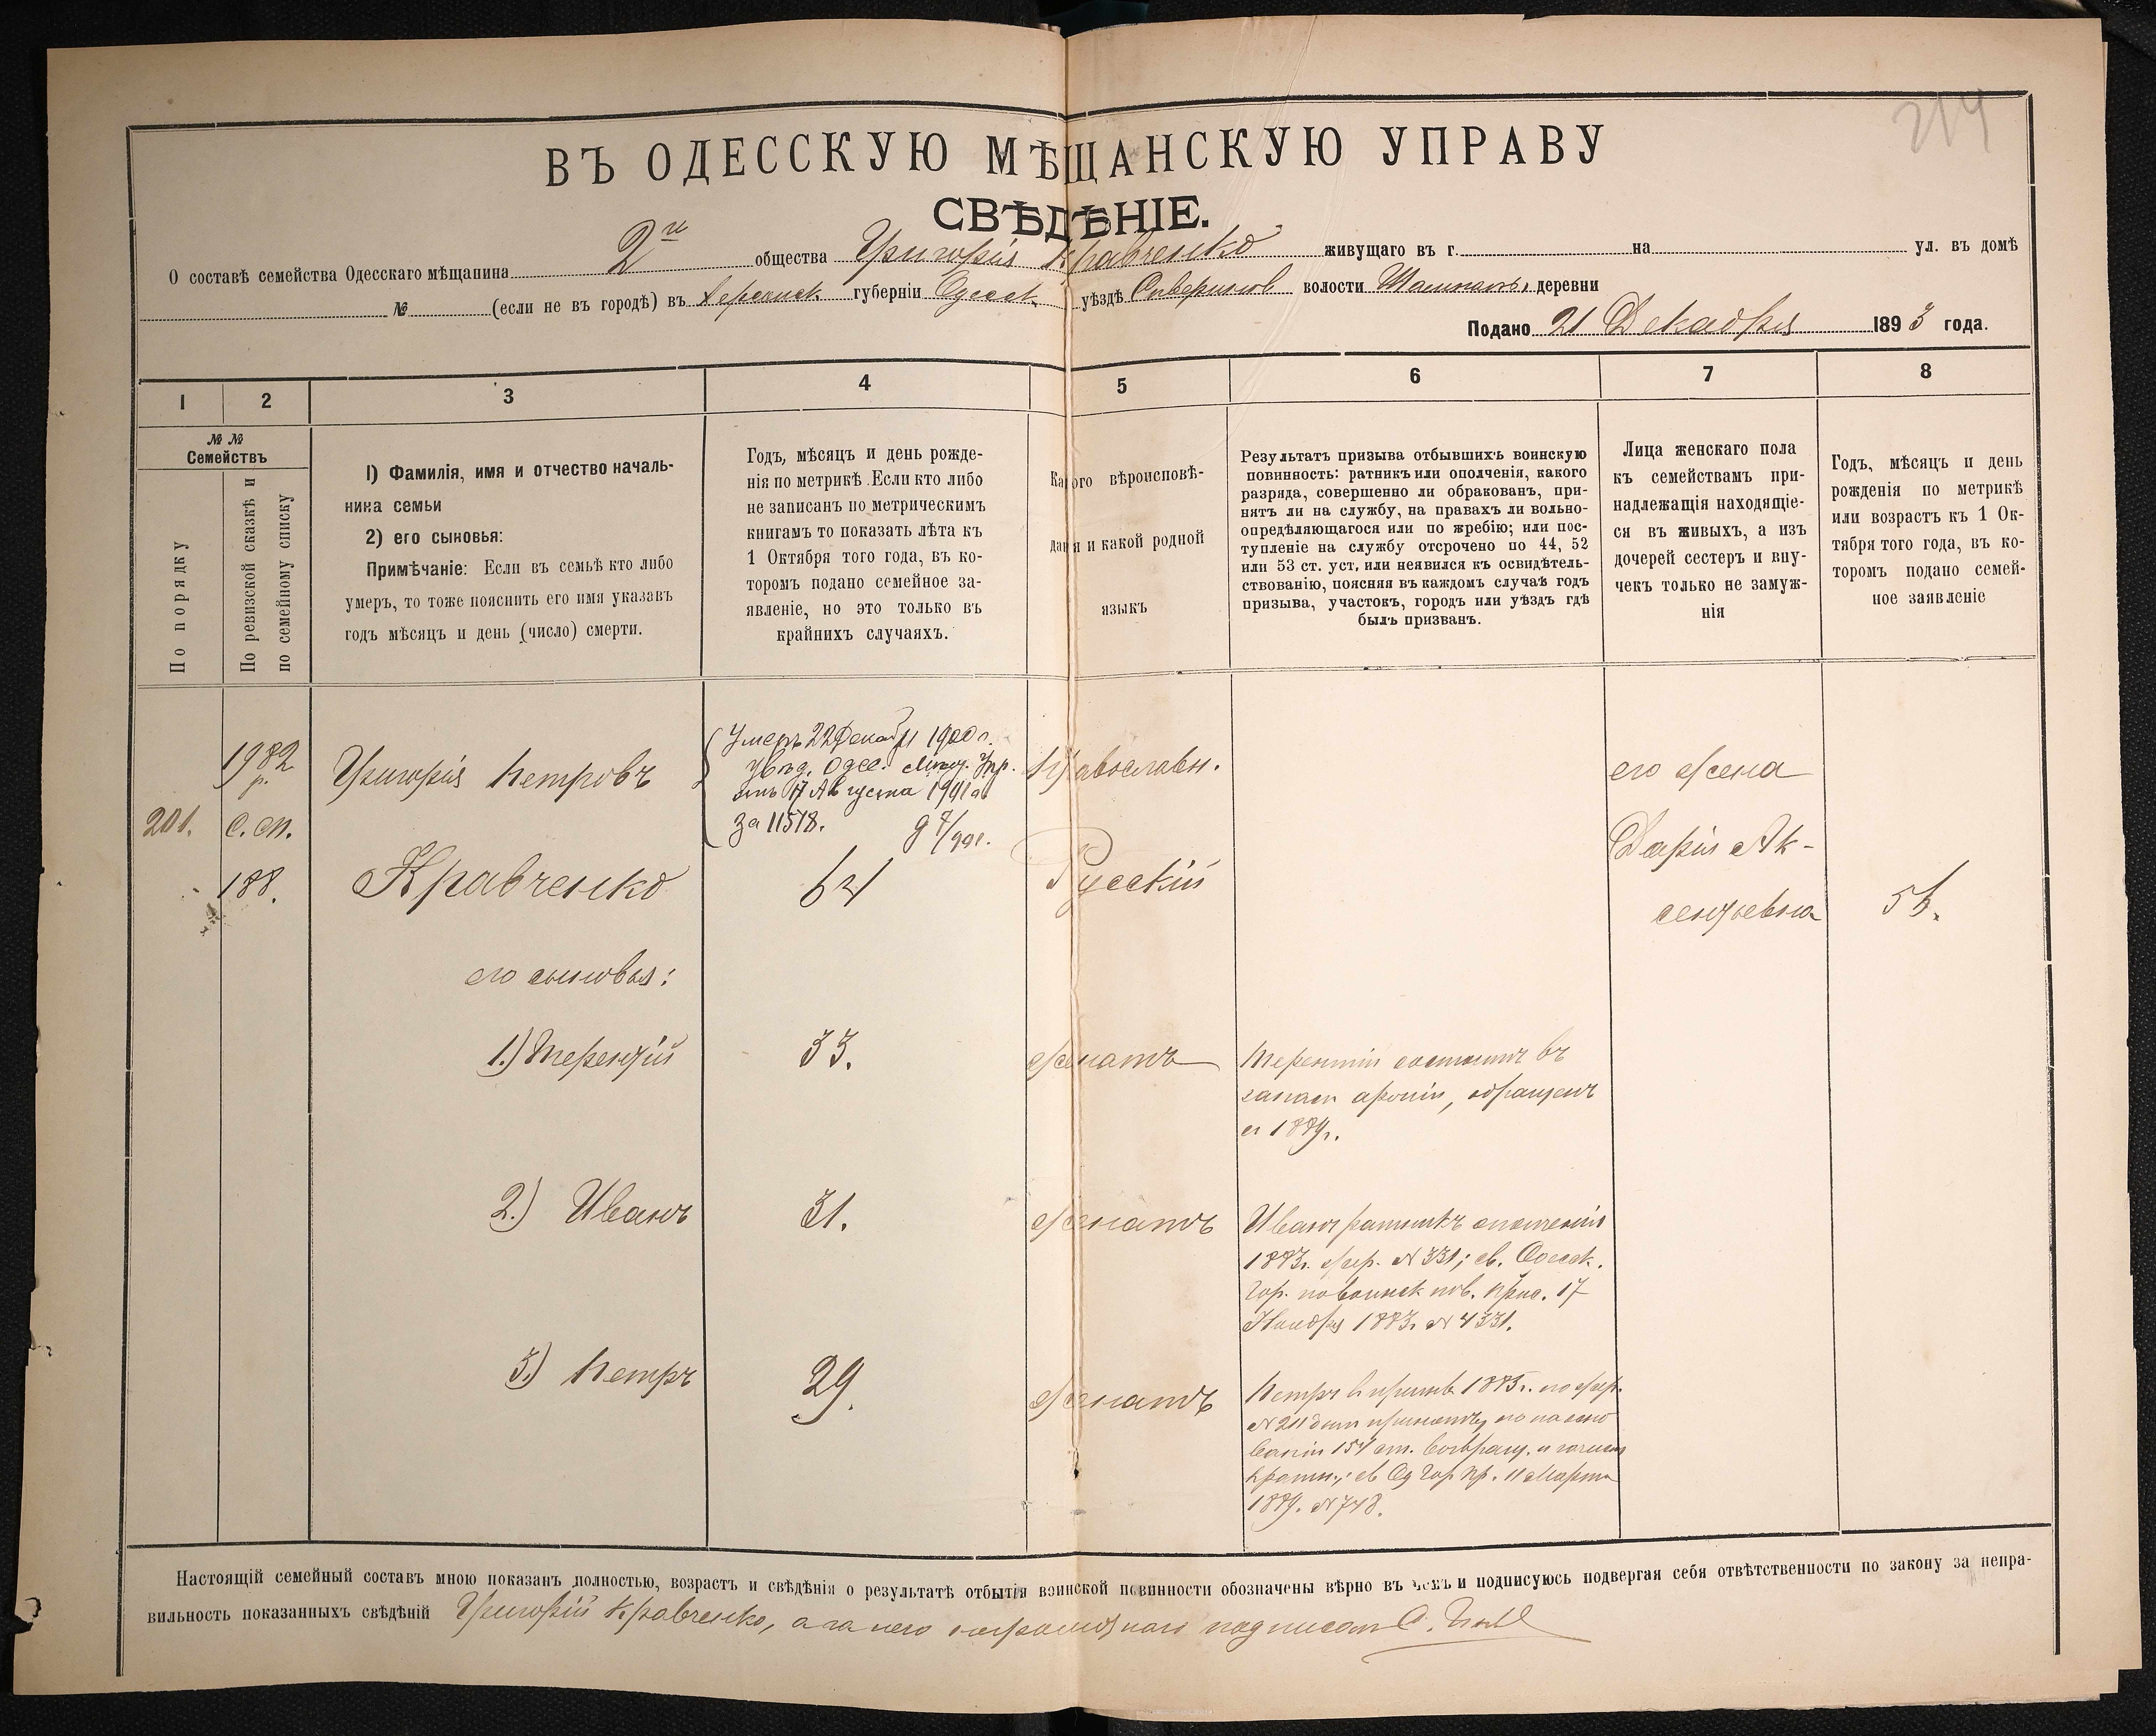 214
ВЪ ОДЕССКУЮ МѢЩАНСКУЮ УПРАВУ
СВѢДѢНІЕ.
О составѣ семейства Одесскаго мѣщанина 2го общества Григорія Кравченко живущаго въ г. на ул. въ домѣ
№ (если не въ городѣ) въ Херсонск. губерніи Одесск. уѣздѣ волости деревни
Подано 21 Декабря 1893 года.
1 2 3 4 5 6 7 8
№ №
Семействъ
По порядку
По ревизской сказкѣ и
по семейному списку
1) Фамилія, имя и отчество началь-
ника семьи
2) его сыновья:
Примѣчаніе: Если въ семьѣ кто либо
умеръ, то тоже пояснить его имя указавъ
годъ мѣсяцъ и день (число) смерти.
Годъ, мѣсяцъ и день рожде-
нія по метрикѣ. Если кто либо
не записанъ по метрическимъ
книгамъ то показать лѣта къ
1 Октября того года, въ ко-
торомъ подано семейное за-
явленіе, но это только въ
крайнихъ случаяхъ.
Какого вѣроисповѣ-
данія и какой родной
языкъ
Результатъ призыва отбывшихъ воинскую
повинность: ратникъ или ополченія, какого
разряда, совершенно ли обракованъ, при-
нятъ ли на службу, на правахъ ли вольно-
опредѣляющагося или по жребію; или пос-
тупленіе на службу отсрочено по 44, 52
или 53 ст. уст, или неявился къ освидѣтель-
ствованію, поясняя въ каждомъ случаѣ годъ
призыва, участокъ, городъ или уѣздъ гдѣ
былъ призванъ.
Лица женскаго пола
къ семействамъ при-
надлежащія находящіе-
ся въ живыхъ, а изъ
дочерей сестеръ и вну-
чекъ только не замуж-
нія
Годъ, мѣсяцъ и день
рожденія по метрикѣ
или возрастъ къ 1 Ок-
тября того года, въ ко-
торомъ подано семей-
ное заявленіе
201.
1982
р.
с. сп.
188.
Григорій Петровъ
Кравченко
Умеръ 22 Декабря 1900 г.
увѣд. Одес. Упр.
отъ 17 Августа 1901 г.
за 11518.
64
Православн.
Русскій
его жена
Дарія Ак-
сентьевна
его сыновья:
1.) Терентій
33.
женатъ
Терентій состоитъ въ
запасѣ арміи,
2.) Иванъ
31.
женатъ
Иванъ ратникъ ополченія
1883г. жер. № 331; св. Одесск.
Гор. по воинск. пов. прис. 17
Ноября 1883г. № 4331.
3.) Петръ
29.
женатъ
Петръ въ призывъ 1885г. по жер.
№ 211 былъ принятъ, но на осно
ваніи 154 ст. возвращ. и зачисл.
Гор. Пр. 11 Марта
№ 748.
Настоящій семейный составъ мною показанъ полностью, возрастъ и свѣдѣнія о результатѣ отбытія воинской повинности обозначены вѣрно въ чемъ и подписуюсь подвергая себя отвѣтственности по закону за непра-
вильность показанныхъ свѣдѣній Григорій Кравченко, а за него неграмотнаго подписалъ